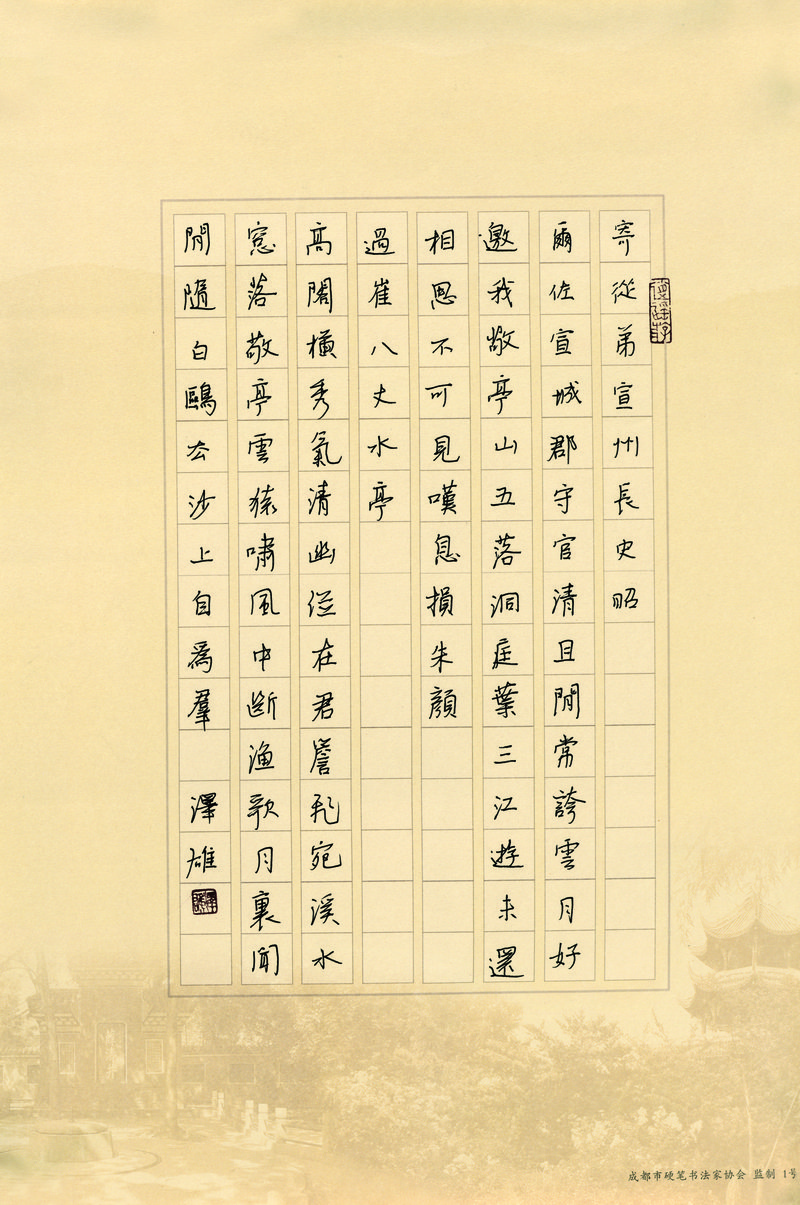 寄從弟宣州長史昭
爾佐宣城郡守官清且閒常誇雲月好
邀我敬亭山五落洞庭葉三江遊未還
相思不可見嘆息損朱顏
過崔八丈水亭
高閣橫秀氣清幽併在君簷飛宛溪水
窻落敬亭雲猿嘯風中斷漁歌月裏聞
閒隨白鷗去沙上自為羣 澤雄
成都市硬笔书法家协会 监制 1号